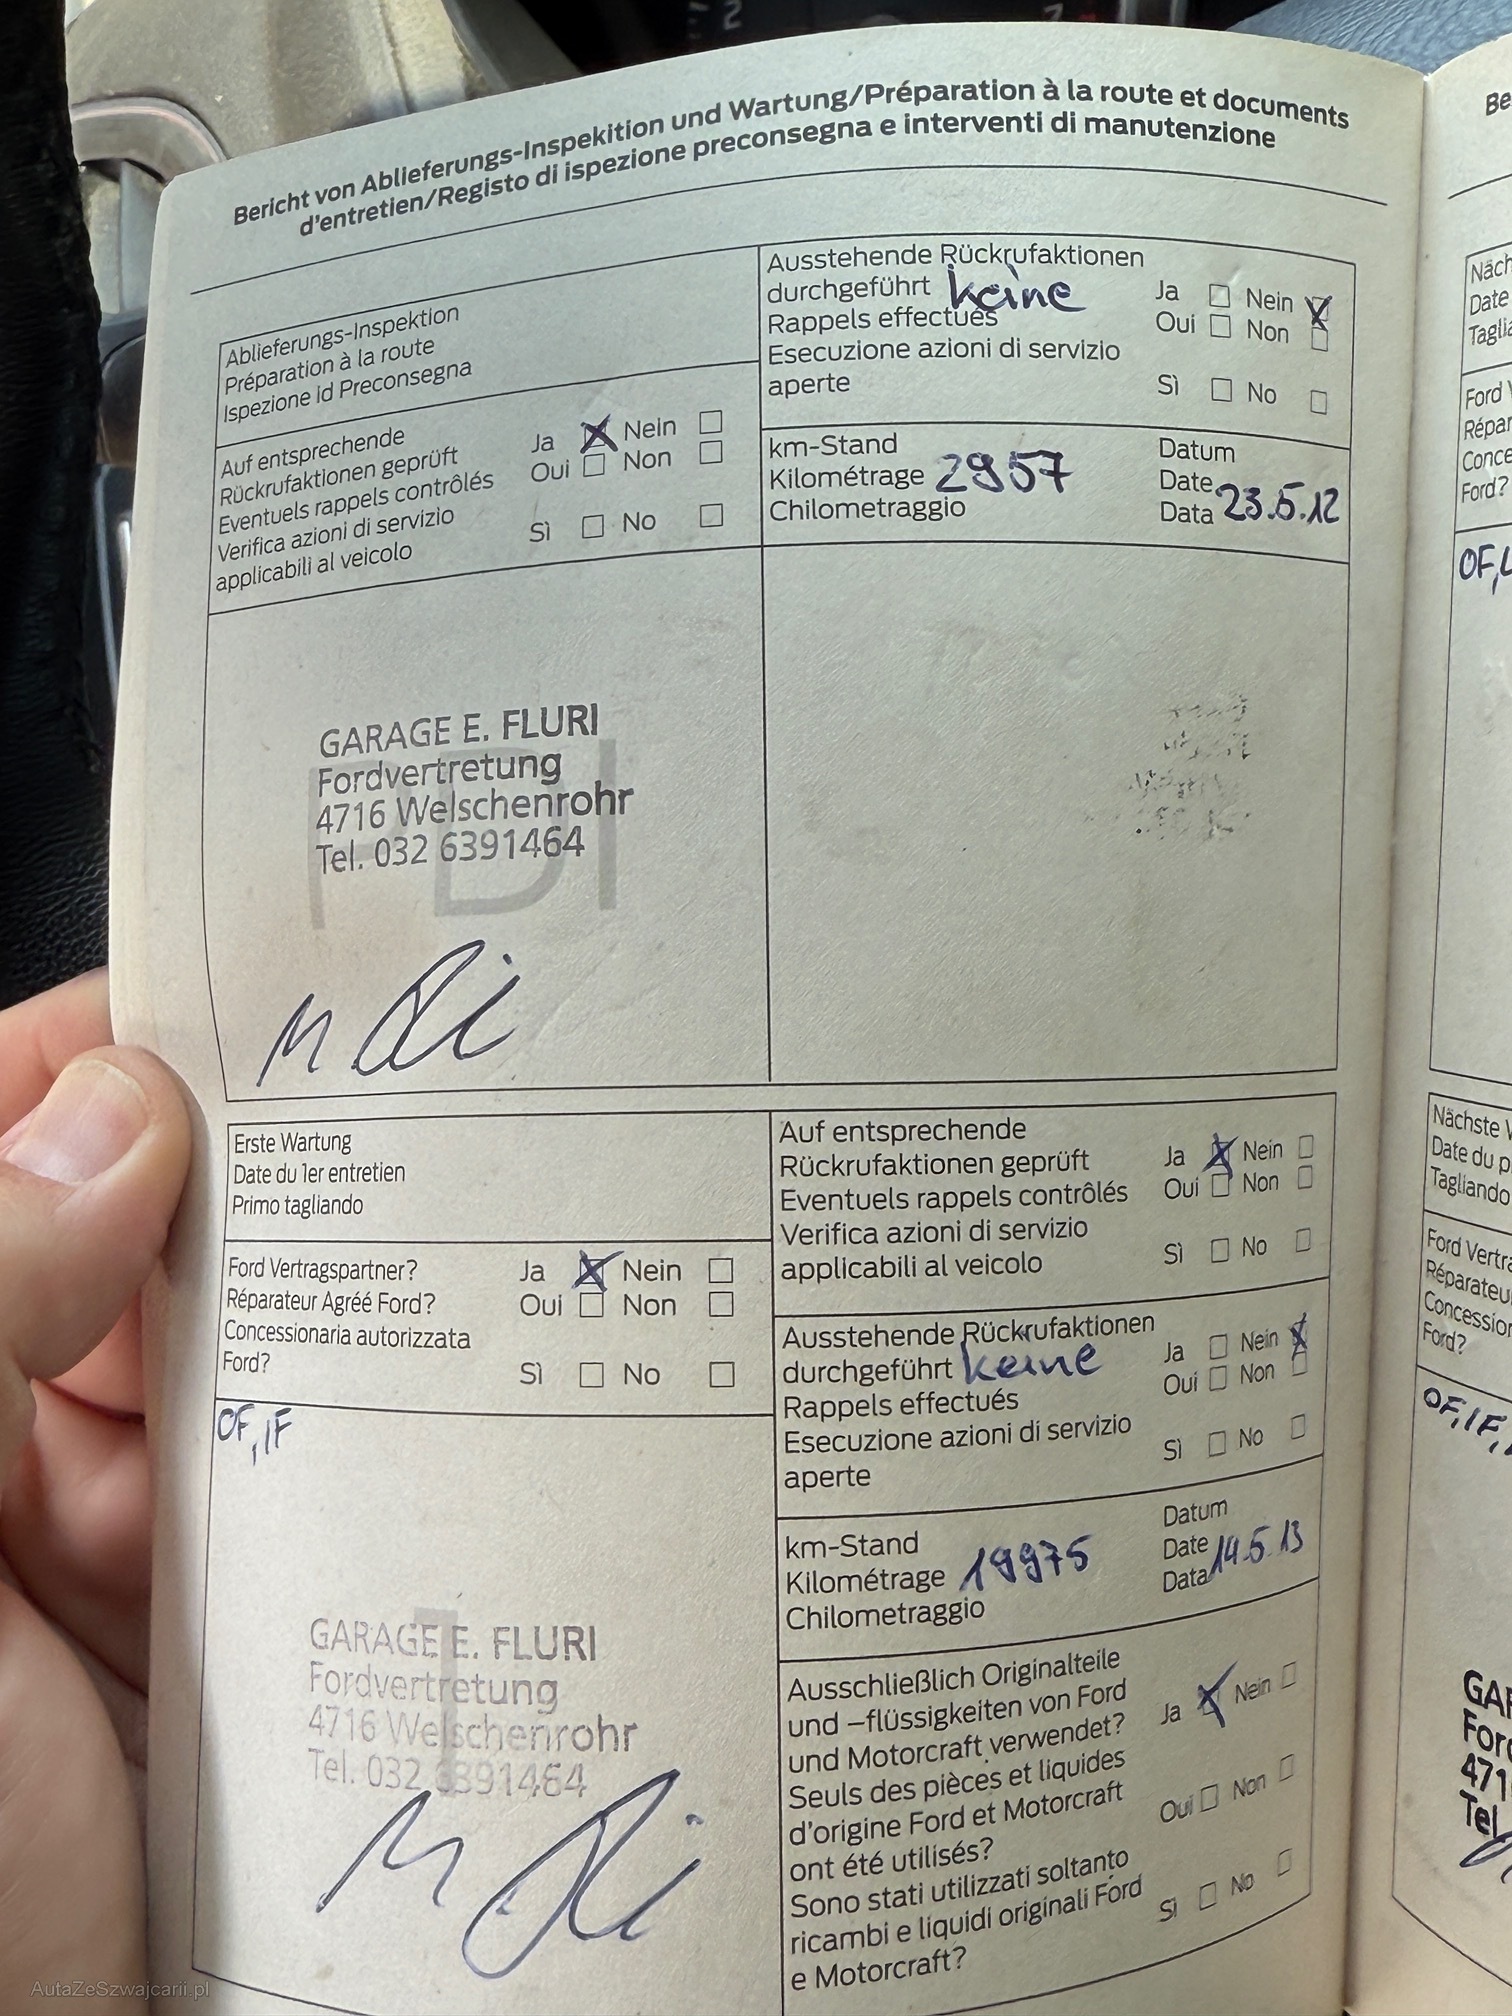 Bericht von Ablieferungs-Inspekition und Wartung/Préparation à la route et documents
d'entretien/Registo di ispezione preconsegna e interventi di manutenzione
Ablieferungs-Inspektion
Préparation à la route
Ispezione id Preconsegna
Auf entsprechende
Rückrufaktionen geprüft
Eventuels rappels contrôlés
Verifica azioni di servizio
applicabili al veicolo
Ja Nein
Oui Non
Sì No
Ausstehende Rückrufaktionen
durchgeführt keine
Rappels effectués
Esecuzione azioni di servizio
aperte
Ja Nein
Oui Non
Sì No
km-Stand
Kilométrage 2957
Chilometraggio
Datum
Date
Data 23.5.12
PDI
GARAGE E. FLURI
Fordvertretung
4716 Welschenrohr
Tel. 032 6391464
Erste Wartung
Date du 1er entretien
Primo tagliando
Ford Vertragspartner?
Réparateur Agréé Ford?
Concessionaria autorizzata
Ford?
Ja Nein
Oui Non
Sì No
OF, IF
1
GARAGE E. FLURI
Fordvertretung
4716 Welschenrohr
Tel. 032 6391464
Auf entsprechende
Rückrufaktionen geprüft
Eventuels rappels contrôlés
Verifica azioni di servizio
applicabili al veicolo
Ja Nein
Oui Non
Sì No
Ausstehende Rückrufaktionen
durchgeführt keine
Rappels effectués
Esecuzione azioni di servizio
aperte
Ja Nein
Oui Non
Sì No
km-Stand
Kilométrage 19975
Chilometraggio
Datum
Date
Data 14.5.13
Ausschließlich Originalteile
und –flüssigkeiten von Ford
und Motorcraft verwendet?
Seuls des pièces et liquides
d'origine Ford et Motorcraft
ont été utilisés?
Sono stati utilizzati soltanto
ricambi e liquidi originali Ford
e Motorcraft?
Ja Nein
Oui Non
Sì No
Be
Näch
Date
Taglia
Ford
Répar
Conce
Ford?
OF,
Nächste
Date du p
Tagliando
Ford Vertra
Réparateu
Concession
Ford?
OF, IF,
GAR
Ford
471
Tel
AutaZeSzwajcarii.pl